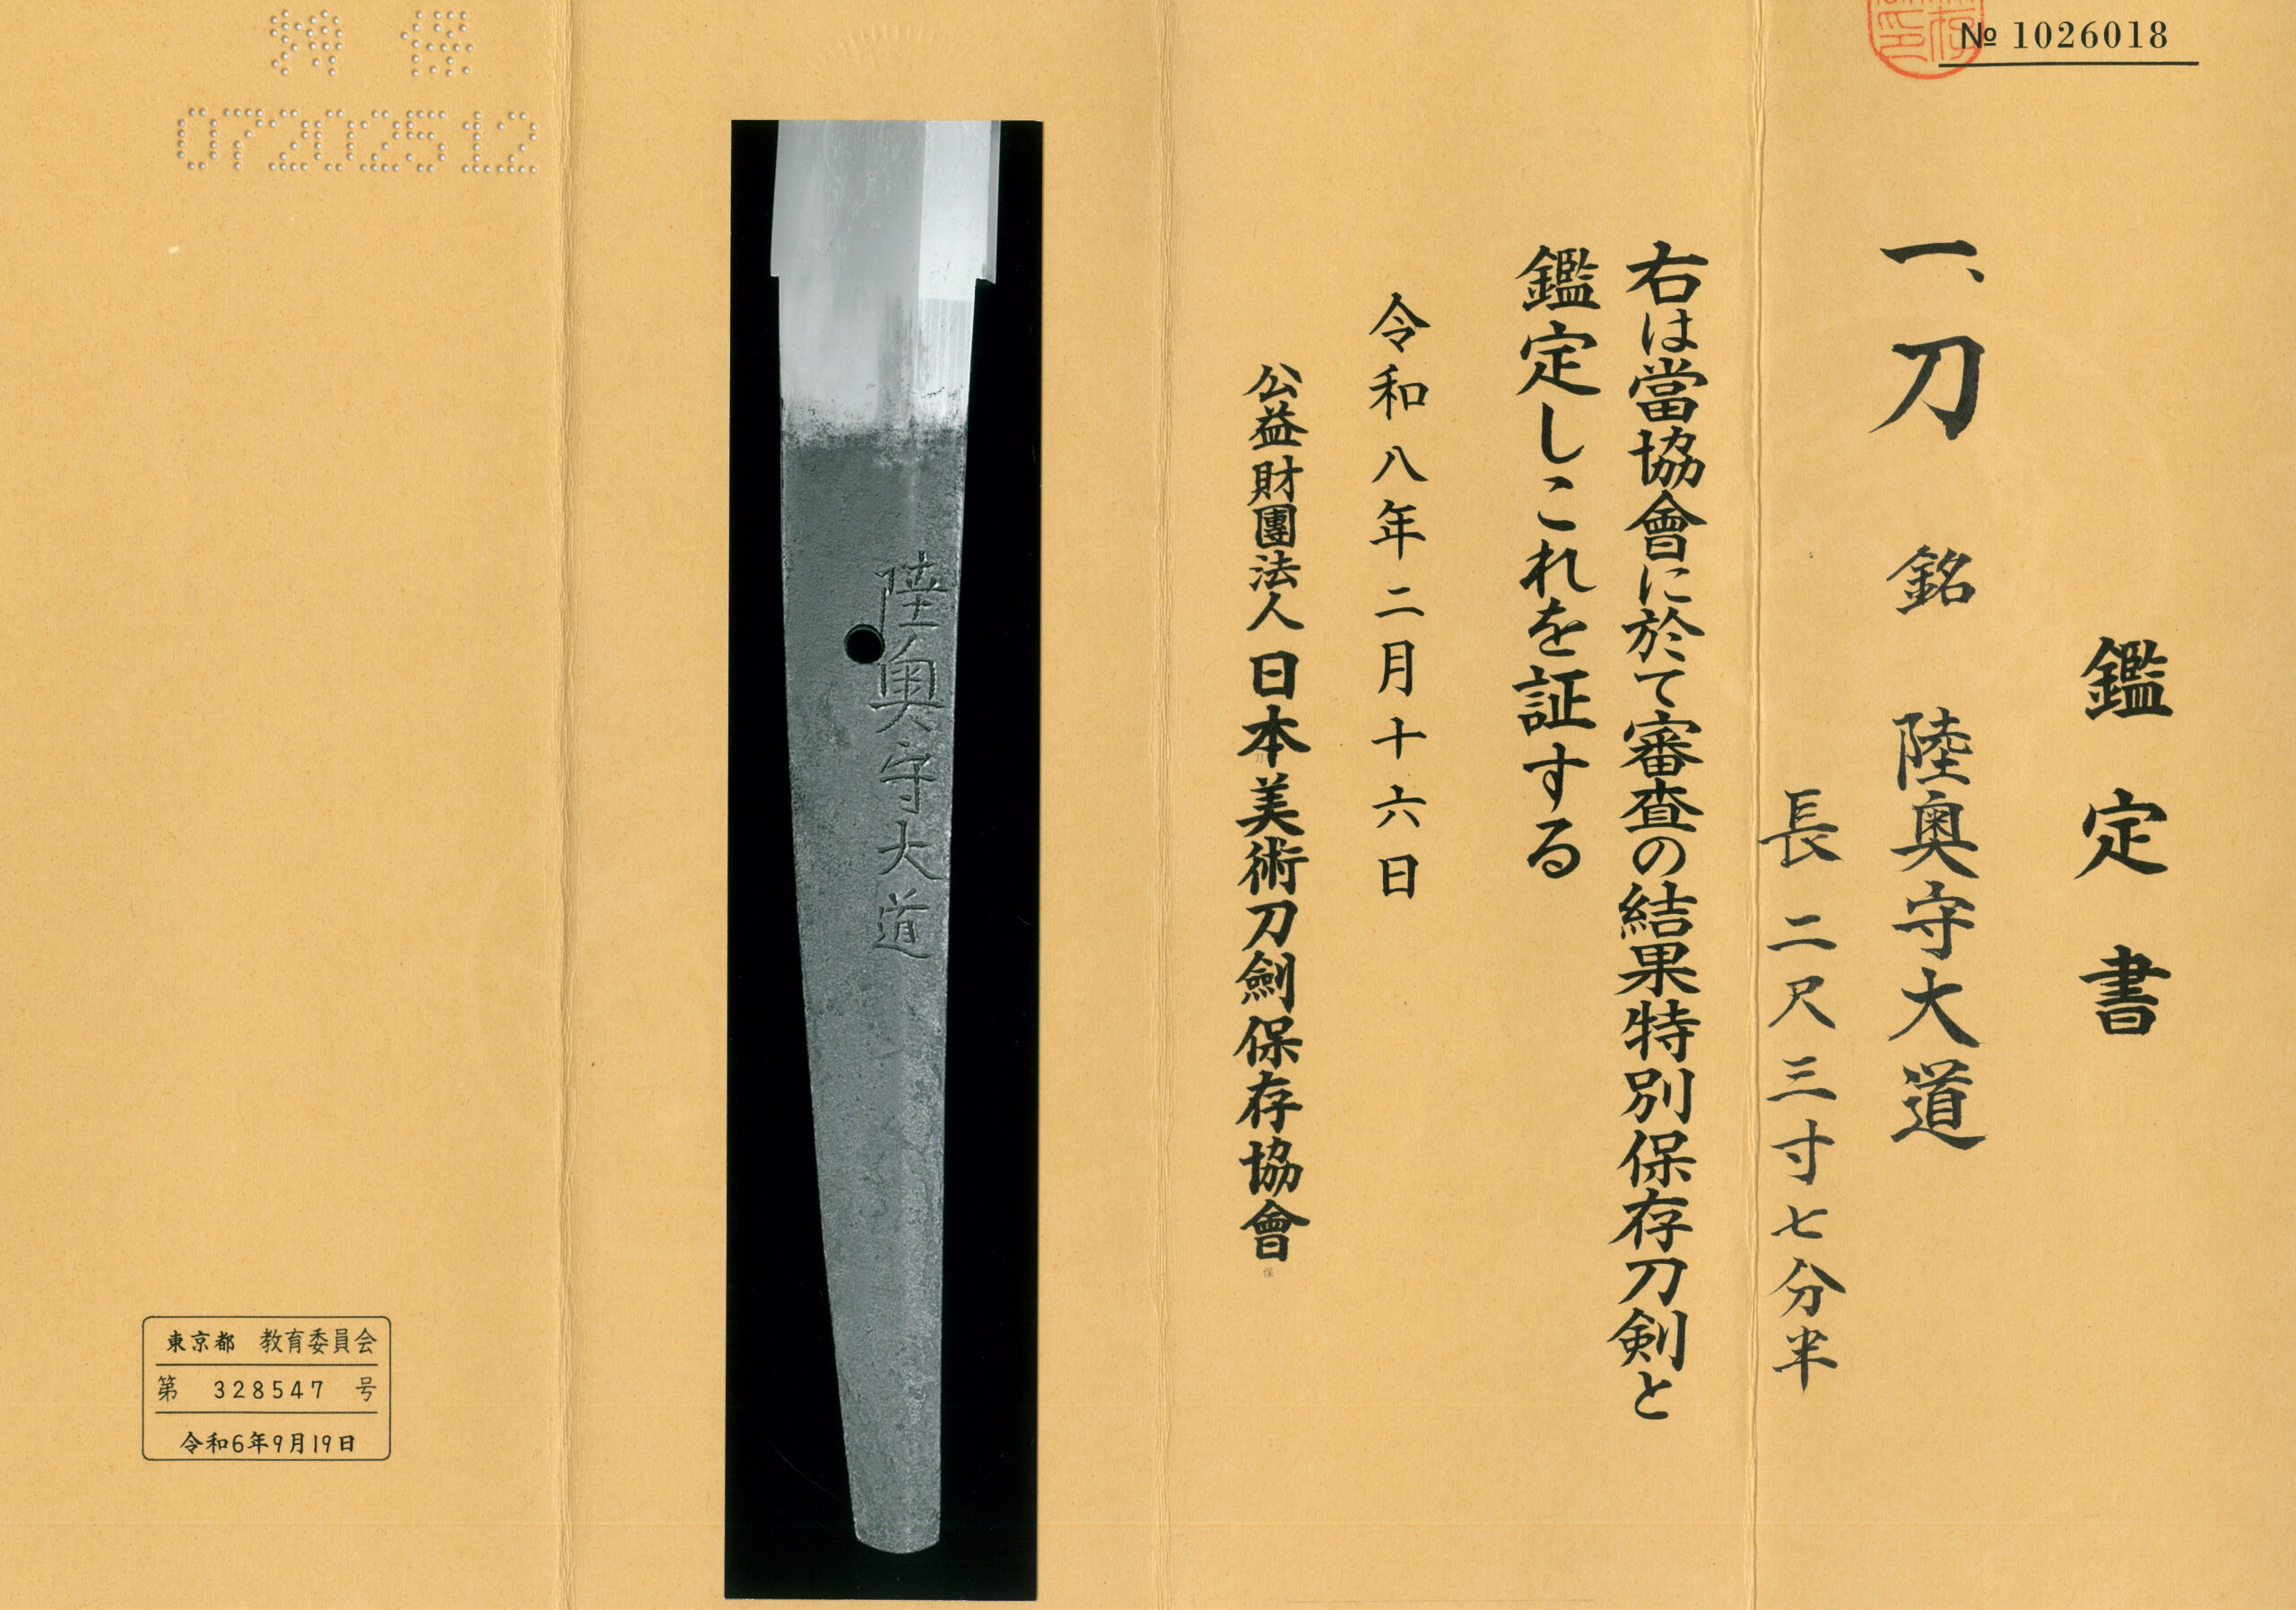 № 1026018
鑑定書
一、刀 銘 陸奥守大道
長 二尺三寸七分半
右は當協會に於て審査の結果特別保存刀剣と
鑑定しこれを証する
令和八年二月十六日
公益財團法人 日本美術刀劍保存協會
陸奥守大道
07202512
東京都 教育委員会
第 328547 号
令和6年9月19日